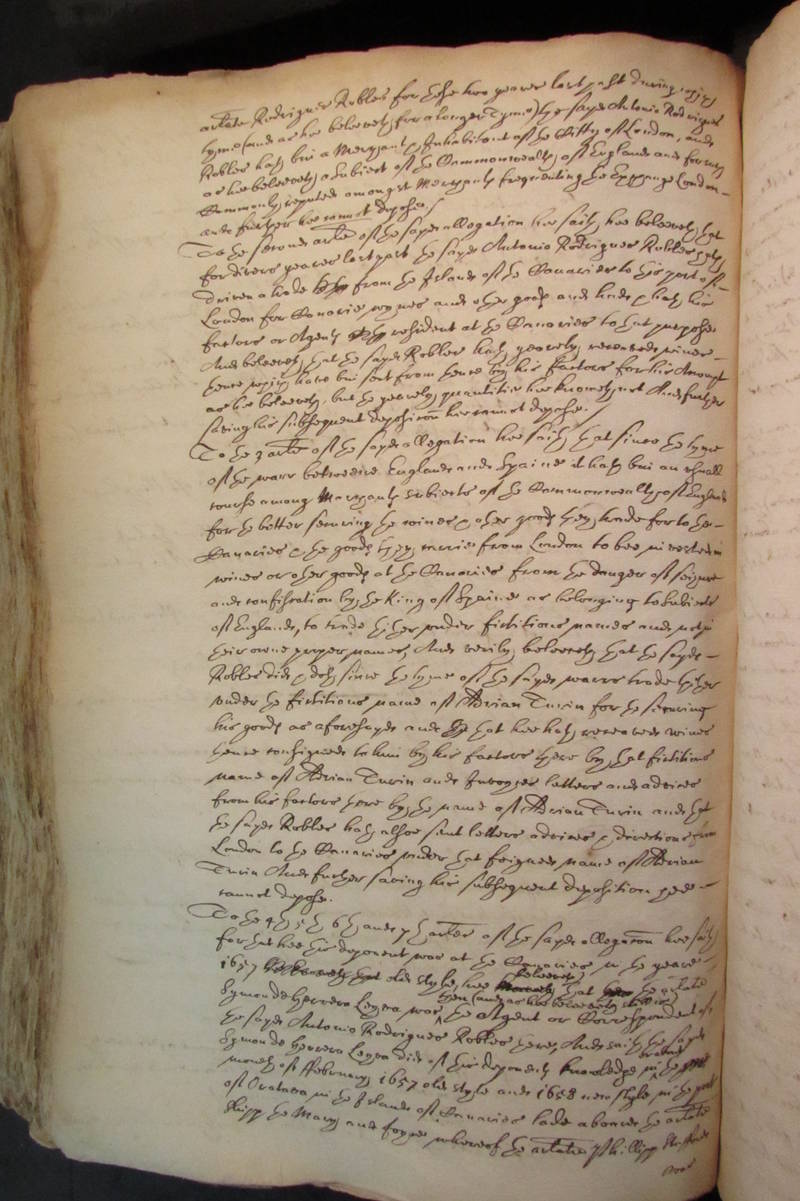 arlate Rodrigues Robles for these two yeares last past during which
tyme (and as hee beleeveth for a longer tyme) the sayd Antonio Rodrigues
Robles hath bin a Merchant & Inhabitant of the Citty of London, and
as hee beleeveth a subiect of the Commonwealth of England and for such
Commonly reputed amongst Merchants frequenting the Exchange London
and further hee cannot depose./
To the second arlte of the sayd allegation hee saith hee beleeveth that
for divers yeares last past the sayd Antonio Rodrigues Robles hath
driven a trade from the Islands of the Canaries to this port of
London for Canarie wynes and other goods and hade & hath his
factors or Agents resident at the Canaries to that purpose
And beleeveth that the sayd Robles hath yearely received wines
thence which have bin sent from thence by his factors for his Accompt
as hee beleeveth, but the yearely quantities hee knoweth not And further
saving his subsequent deposicon hee cannot depose./
To the 3 arlte of the sayd allegation hee saith that since the tyme
of the warr betweene England and Spaine it hath bin an usuall
course among Merchants subiects of the Commonwealth of England
for the better securing the wines & other goods they trade for to the
Canaries & the goods they carrie from London to bee invested in
wines or other goods at the Canaries from the danger of seizure
and confiscation by the King of Spaine as belonging to subiects
of England, to trade thither under fictitious names and not in
their owne proper names, And verily beleeveth that the sayd
Robles did & doth since the tyme of the sayd warrs trade thither
under the fictitious name of Adrian Turin for the securing
his goods as aforesayd and that hee hath received wines
thence consigned to him by his factors there by that fictitious
name of Adrian Turin and Invoyces letters and advices
from his factors there by the name of Adrian Turin and that
the sayd Robles hath alsoe sent letters advices & directions from
London to the Canaries under that feigned name of Adrian
Turin And further saving his subsequent deposition hee
cannot depose.
To the 4th 5th 6th and 7th arltes of the sayd allegacon hee saith
for that hee this deponent was at the Canaries in the yeare
1657 old style, hee beleeveth that the arlate
Symon de Herrera Leyva was then (and as hee beleeveth still is) the Agent or Correspondent of
the sayd Antonio Rodrigues Robles there, And saith the sayd
Symon de Herrera Leyva did of this deponents knowledge in the
moneth of ffebruary 1657 old style and 1658 new style in the port
of Oratava in the Islands of Canaries lade aboard the arlate
shipp the Mary and Joyce whereof the arlate Phillipp Stafford
was